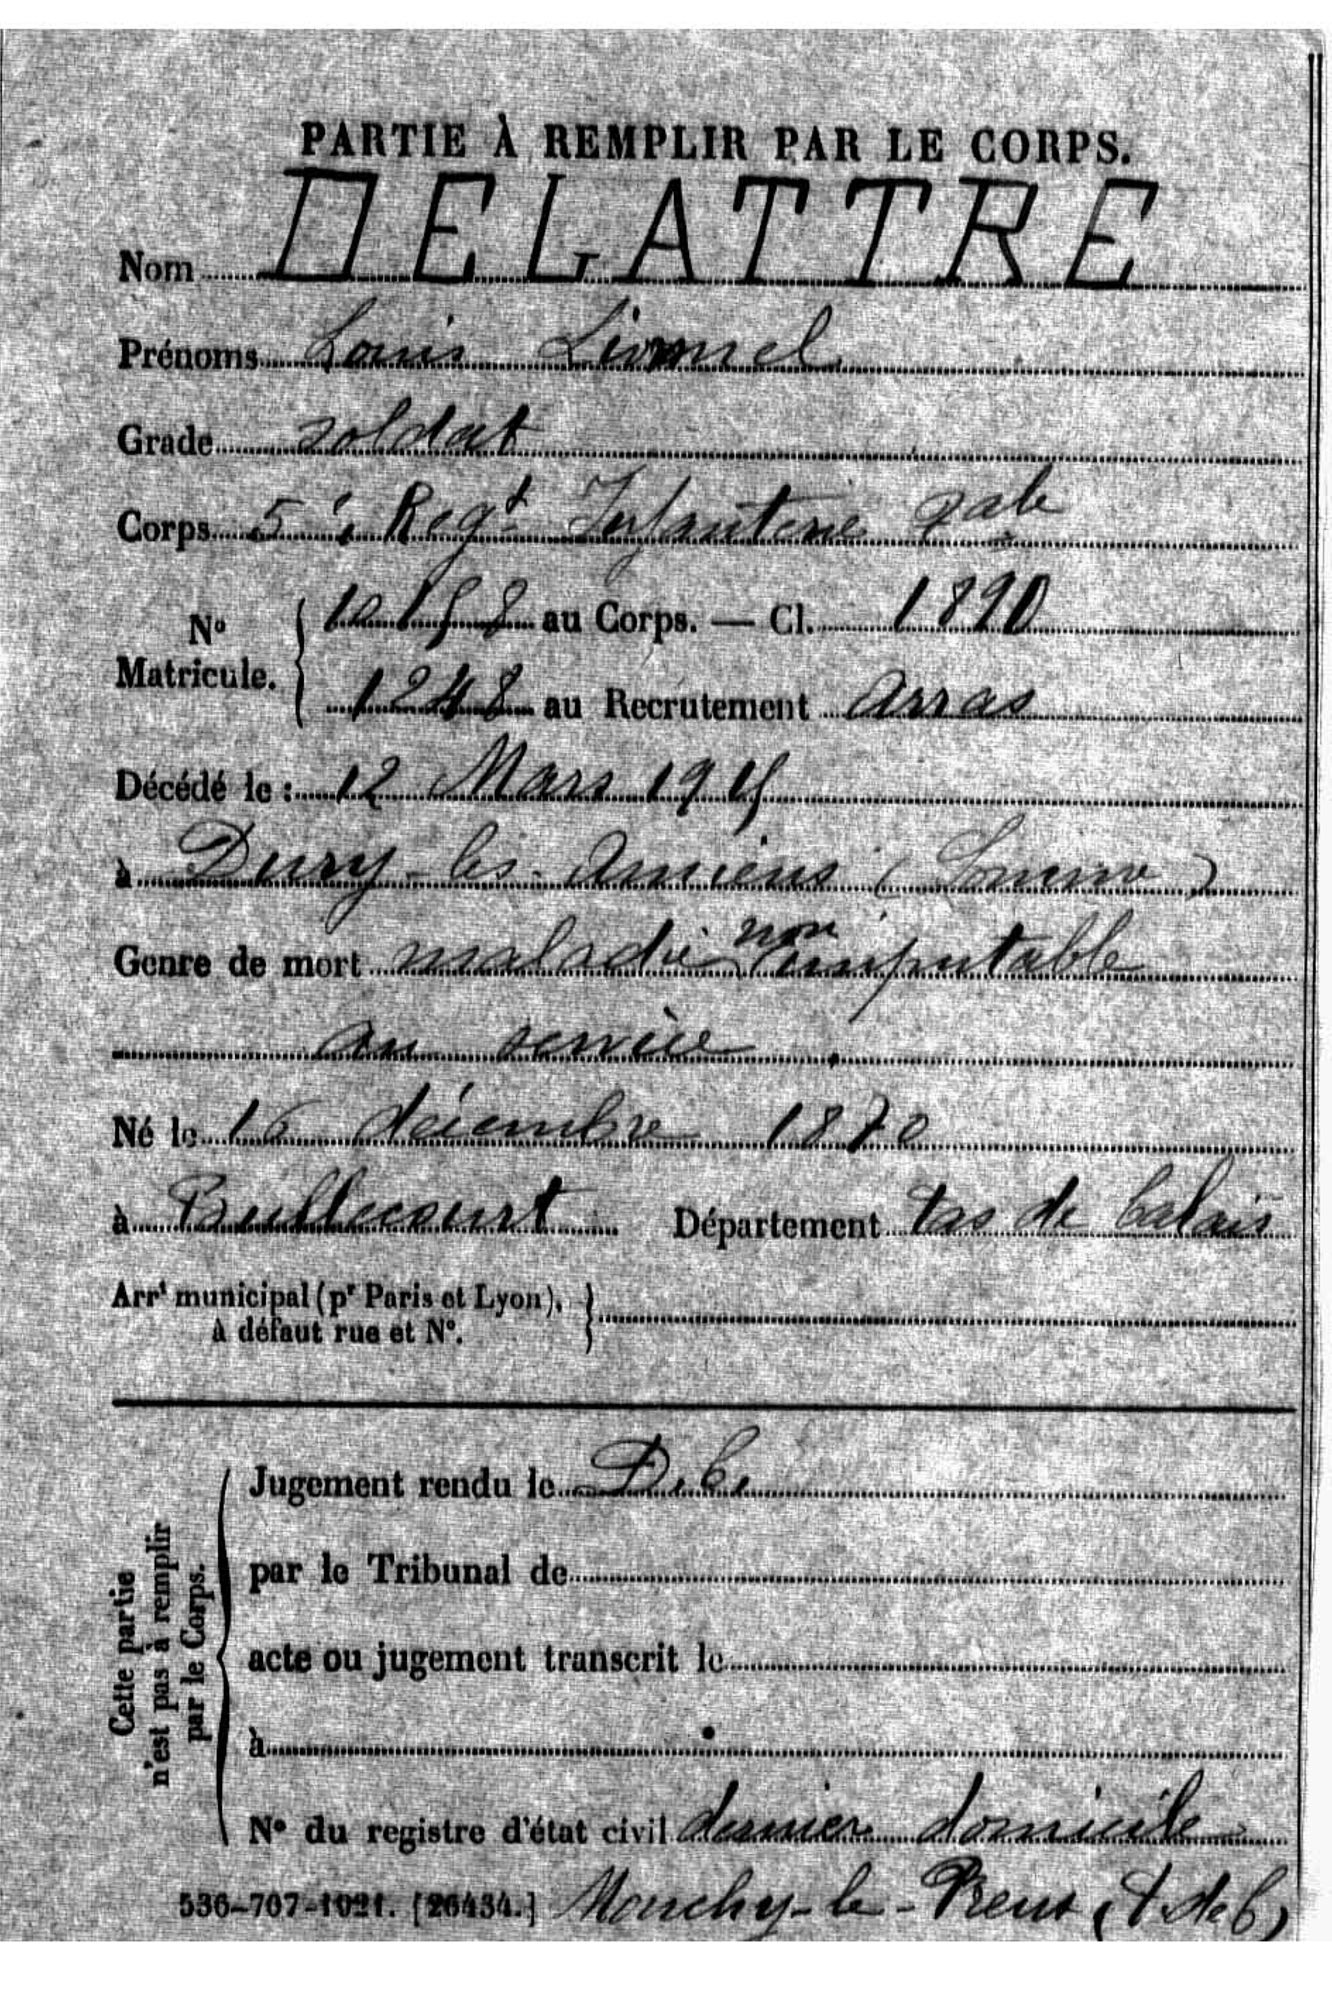 PARTIE À REMPLIR PAR LE CORPS.
Nom DELATTRE
Prénoms Louis Lionnel
Grade soldat
Corps 5e Regt Infanterie
N° Matricule. 10158 au Corps. — Cl. 1890
1248 au Recrutement Arras
Décédé le : 12 Mars 1915
à Dury-les-Amiens (Somme)
Genre de mort maladie non imputable
au service
Né le 16 décembre 1870
à Bullecourt Département Pas de Calais
Arrt municipal (pr Paris et Lyon),
à défaut rue et N°.
Cette partie
n'est pas à remplir
par le Corps.
Jugement rendu le
par le Tribunal de
acte ou jugement transcrit le
à
N° du registre d'état civil dernier domicile
536-707-1921. [26434.] Monchy-le-Preux (P.de C)